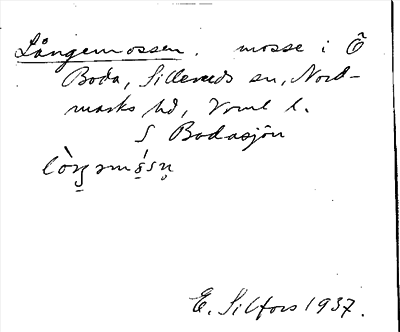 Långemossen. mosse i Ö
Boda, Silleruds sn, Nord-
marks hd, Vrml l.
S Bodasjön
E. Silfors 1937.